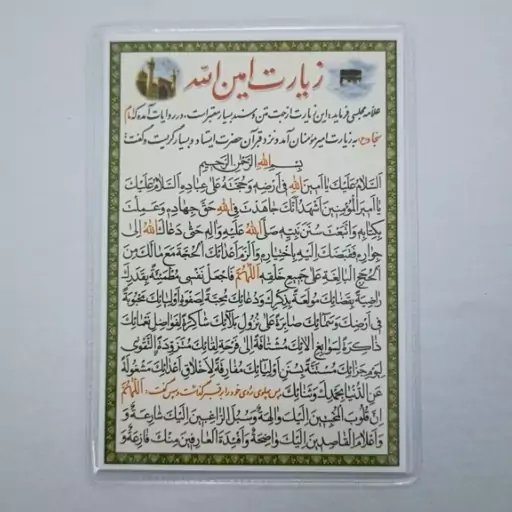 زیارت امین الله
علامه مجلسی فرماید: این زیارت از جهت متن و سند بسیار معتبر است، در روایات آمده که امام
سجاد(ع) به زیارت امیرمؤمنان آمد و نزد قبر آن حضرت ایستاد و بسیار گریست و گفت:
بِسْمِ اللهِ الرَّحْمٰنِ الرَّحیمِ
اَلسَّلامُ عَلَیْکَ یا اَمینَ اللهِ فی اَرْضِهِ وَ حُجَّتَهُ عَلی عِبادِهِ اَلسَّلامُ عَلَیْکَ
یا اَمیرَ الْمُؤْمِنینَ اَشْهَدُ اَنَّکَ جاهَدْتَ فِی اللهِ حَقَّ جِهادِهِ وَ عَمِلْتَ
بِکِتابِهِ وَاتَّبَعْتَ سُنَنَ نَبِیِّهِ صَلَّی اللهُ عَلَیْهِ وَ الِهِ حَتّی دَعاکَ اللهُ اِلی
جِوارِهِ فَقَبَضَکَ اِلَیْهِ بِاخْتِیارِهِ وَ اَلْزَمَ اَعْدائَکَ الْحُجَّةَ مَعَ مالَکَ مِنَ
الْحُجَجِ الْبالِغَةِ عَلی جَمیعِ خَلْقِهِ اَللّهُمَّ فَاجْعَلْ نَفْسی مُطْمَئِنَّةً بِقَدَرِکَ
راضِیَةً بِقَضائِکَ مُولَعَةً بِذِکْرِکَ وَ دُعائِکَ مُحِبَّةً لِصَفْوَةِ اَوْلِیائِکَ مَحْبُوبَةً
فی اَرْضِکَ وَ سَمائِکَ صابِرَةً عَلی نُزُولِ بَلائِکَ شاکِرَةً لِفَواضِلِ نَعْمائِکَ
ذاکِرَةً لِسَوابِغِ الائِکَ مُشْتاقَةً اِلی فَرْحَةِ لِقائِکَ مُتَزَوِّدَةً التَّقْوی
لِیَوْمِ جَزائِکَ مُسْتَنَّةً بِسُنَنِ اَوْلِیائِکَ مُفارِقَةً لِاَخْلاقِ اَعْدائِکَ مَشْغُولَةً
عَنِ الدُّنْیا بِحَمْدِکَ وَ ثَنائِکَ پس پهلوی روی خود را بر قبر گذاشت و سپس گفت: اَللّهُمَّ
اِنَّ قُلُوبَ الْمُخْبِتینَ اِلَیْکَ والِهَةٌ وَ سُبُلَ الرّاغِبینَ اِلَیْکَ شارِعَةٌ وَ
وَ اَعْلامَ الْقاصِدینَ اِلَیْکَ واضِحَةٌ وَ اَفْئِدَةَ الْعارِفینَ مِنْکَ فازِعَةٌ وَ